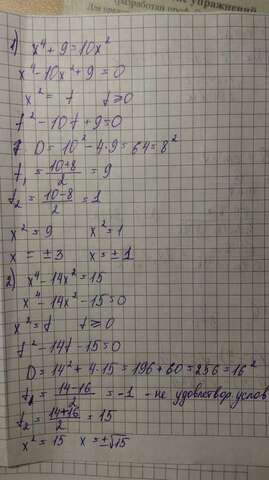 упражнений
(разработан
Для
1) x⁴ + 9 = 10x²
x⁴ - 10x² + 9 = 0
x² = t t ≥ 0
t² - 10t + 9 = 0
D = 10² - 4·9 = 64 = 8²
t₁ = (10+8)/2 = 9
t₂ = (10-8)/2 = 1
x² = 9 x² = 1
x = ±3 x = ±1
2) x⁴ - 14x² = 15
x⁴ - 14x² - 15 = 0
x² = t t ≥ 0
t² - 14t - 15 = 0
D = 14² + 4·15 = 196 + 60 = 256 = 16²
t₁ = (14-16)/2 = -1 - не удовлетвор. услов
t₂ = (14+16)/2 = 15
x² = 15 x = ±√15